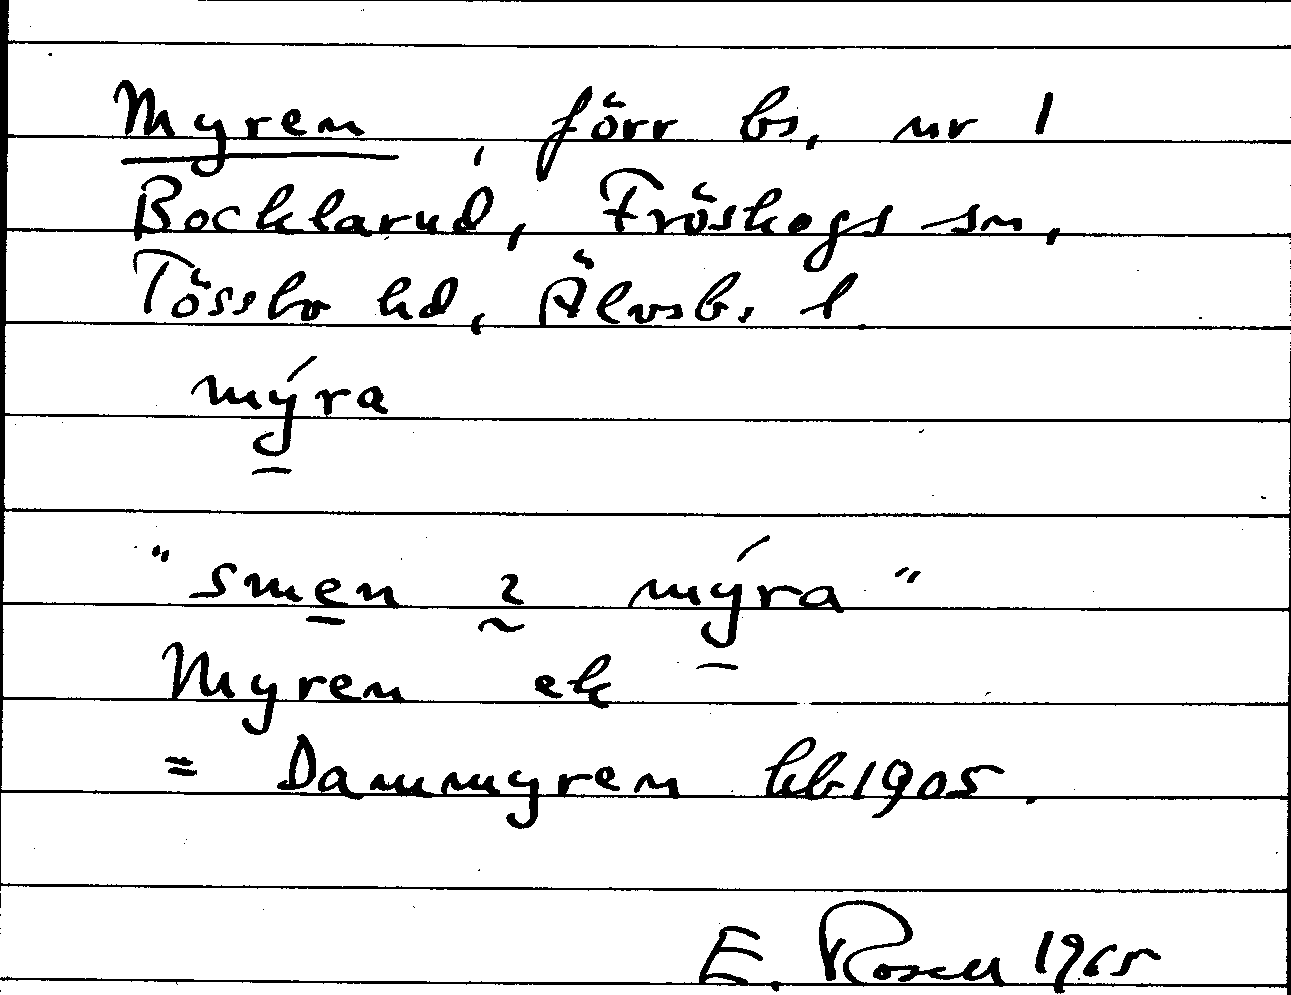 Myren, förr bs, nr 1
Bocklarud, Fröskogs sn,
Tössbo hd, Älvsb. l.
mýra
"smen 2 mýra"
Myren ek
= Dammyren kb 1905.
E. Rosell 1965